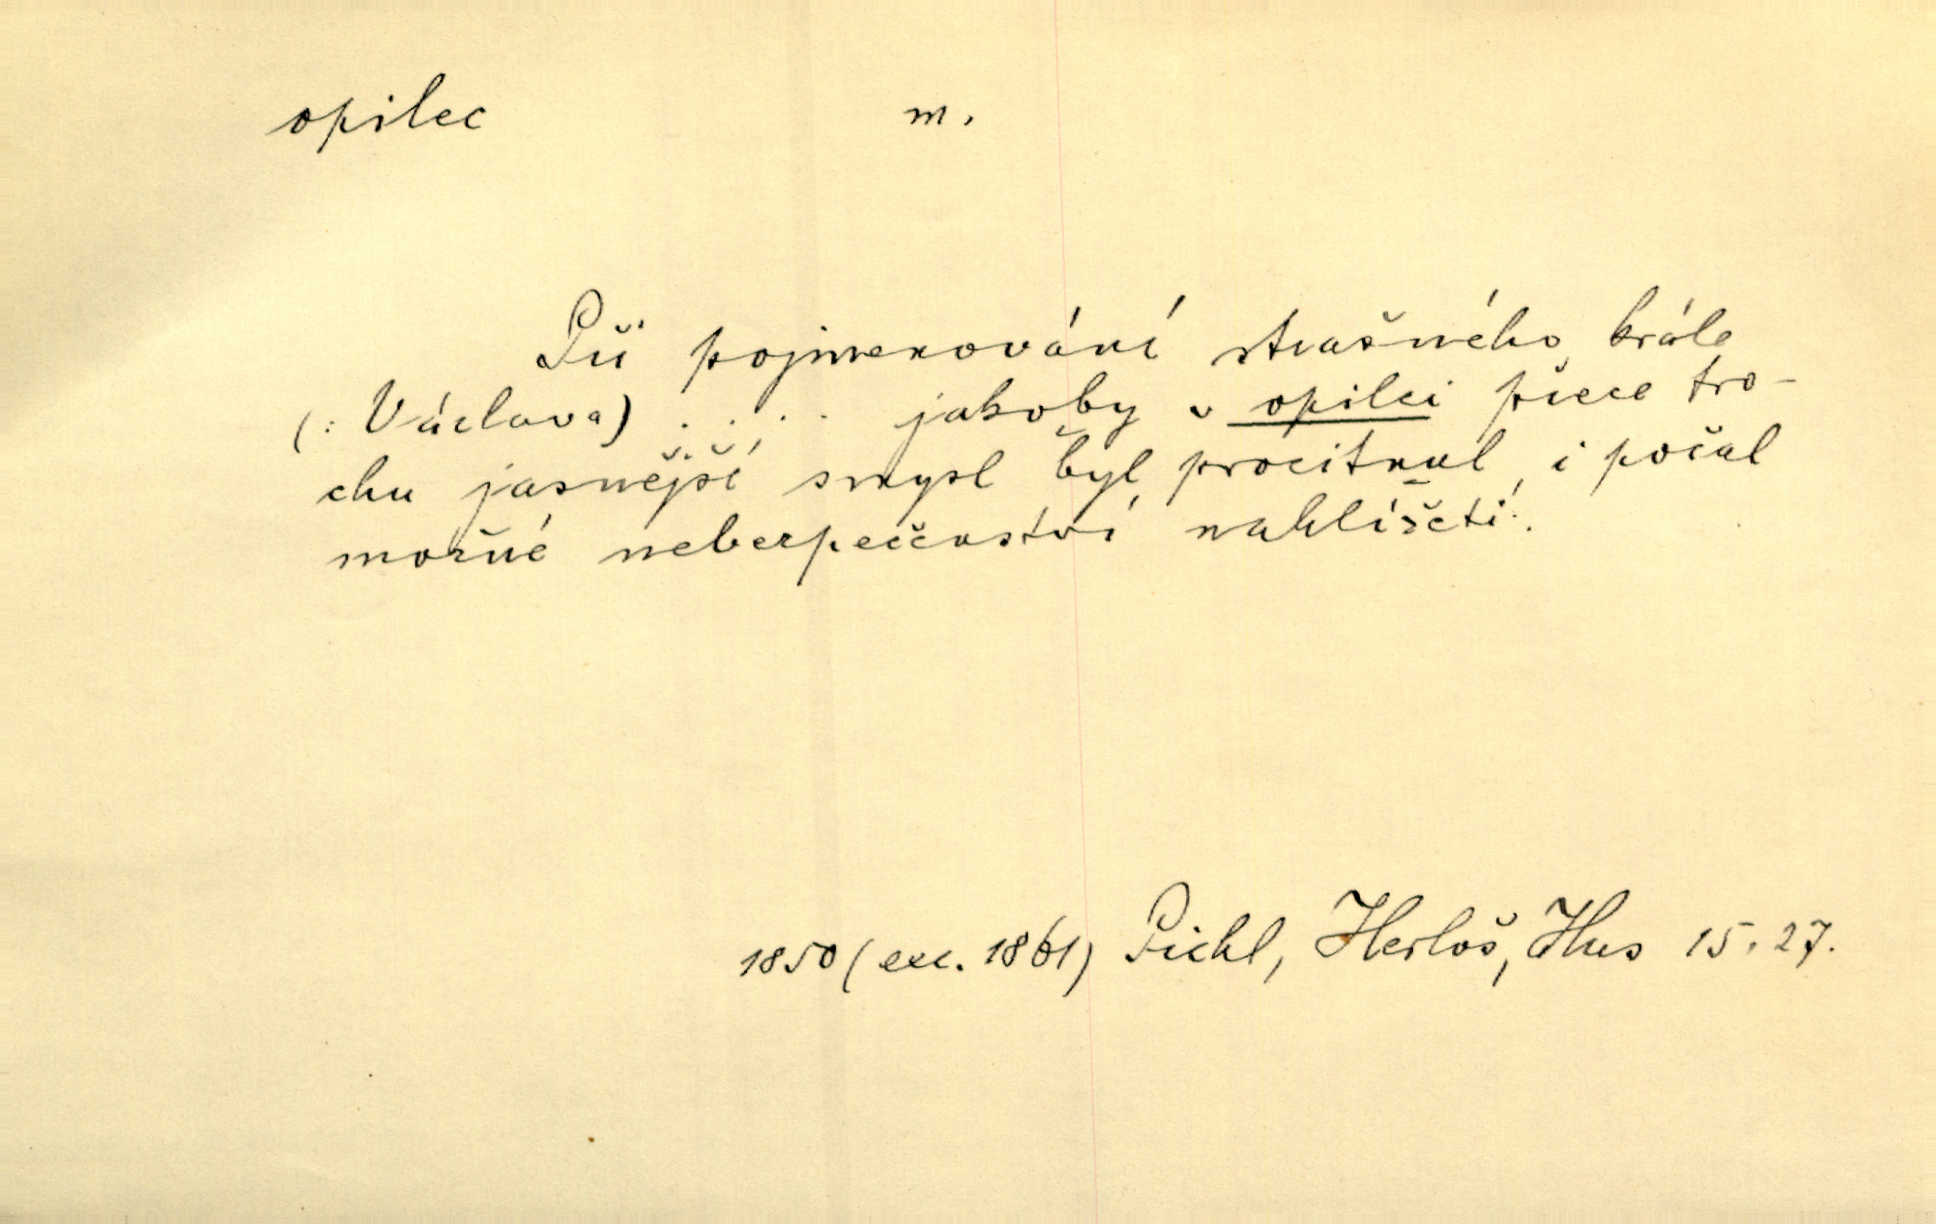 opilec m.
Při pojmenování strašného krále
(: Václava) . . . . jakoby v opilci přece tro-
chu jasnější smysl byl procitnul, i počal
možné nebezpečenství nahlížeti.
1850 (exc. 1861) Pichl, Herloš, Hus 15. 27.